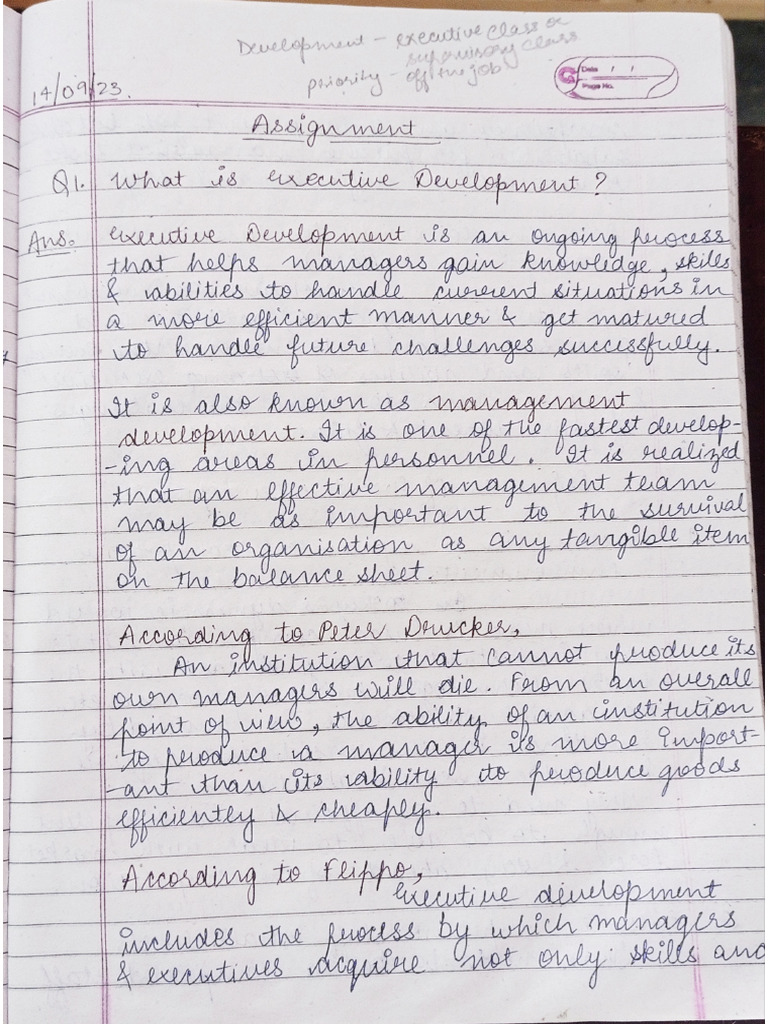 Development - executive class or
supervisory class
priority - off the job
Date / /
Page No.
14/09/23.
Assignment
Q1. What is executive Development?
Ans. executive Development is an ongoing process
that helps managers gain knowledge, skills
& abilities to handle current situations in
a more efficient manner & get matured
to handle future challenges successfully.
It is also known as management
development. It is one of the fastest develop-
-ing areas in personnel. It is realized
that an effective management team
may be as important to the survival
of an organisation as any tangible item
on the balance sheet.
According to Peter Drucker,
An institution that cannot produce its
own managers will die. From an overall
point of view, the ability of an institution
to produce a manager is more import-
-ant than its ability to produce goods
efficiently & cheaply.
According to Flippo,
executive development
includes the process by which managers
& executives acquire not only skills and